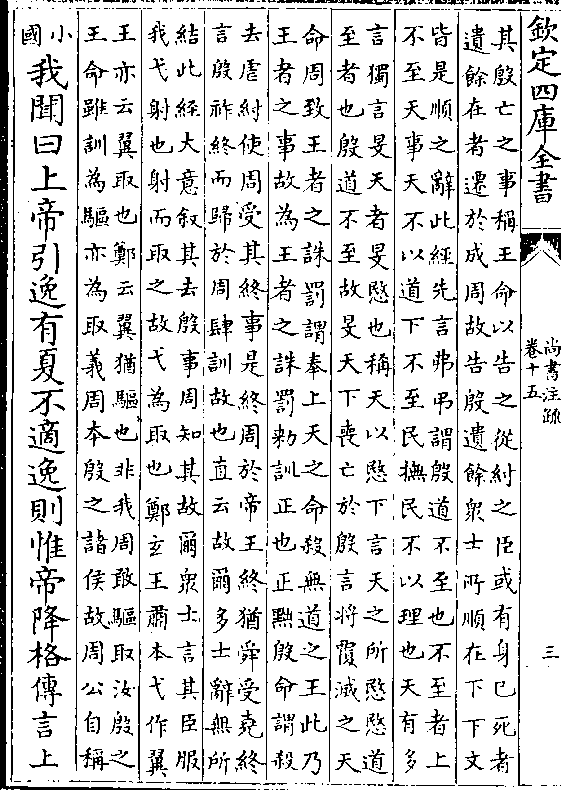 欽定四庫全書
尚書注疏
卷十五
三
其殷亡之事稱王命以告之從紂之臣或有身已死者
遺餘在者遷於成周故告殷遺餘衆士所順在下下文
皆是順之辭此經先言弗弔謂殷道不至也不至者上
不至天事天不以道下不至民撫民不以理也天有多
言獨言旻天者旻愍也稱天以愍下言天之所愍愍道
至者也殷道不至故旻天下喪亡於殷言將覆滅之天
命周致王者之誅罰謂奉上天之命殺無道之王此乃
王者之事故為王者之誅罰勑訓正也正黜殷命謂殺
去虐紂使周受其終事是終周於帝王終猶舜受堯終
言殷祚終而歸於周肆訓故也直云故爾多士辭無所
結此經大意叙其去殷事周知其故爾衆士言其臣服
我弋射也射而取之故弋為取也鄭玄王肅本弋作翼
王亦云翼取也鄭云翼猶驅也非我周敢驅取汝殷之
王命雖訓為驅亦為取義周本殷之諸侯故周公自稱
小國
我聞曰上帝引逸有夏不適逸則惟帝降格傳言上